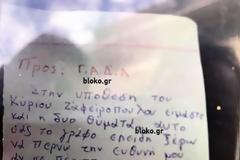 bloko.gr
Προς: Γ.Α.Δ.Α
Στην υπόθεση του
Κυρίου Ζαφειρόπουλου είμαστε
bloko.gr
και η δυο θύματα, αυτο
σας το γράφω επειδή ξέρω
να περνω την ευθύνη μου